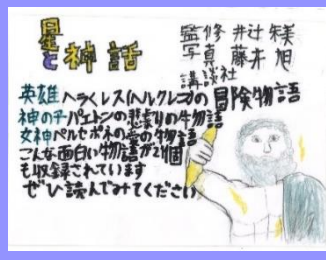 星と神話
監修 井辻朱美
写真 藤井旭
講談社
英雄ヘラクレス(ヘルクレス)の冒険物語
神の子パエトンの悲劇の物語
女神ペルセポネの愛の物語
こんな面白い物語が21個
も収録されています
ぜひ読んでみてください